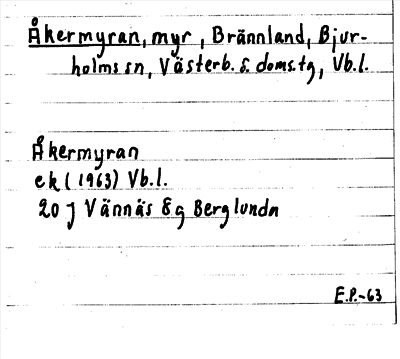 Åkermyran, myr, Brännland, Bjur-
holms sn, Västerb. s. doms.tg, Vb.l.
Åkermyran
ek (1963) Vb.l.
20 J Vännäs 8g Berglunda
E.P.-63